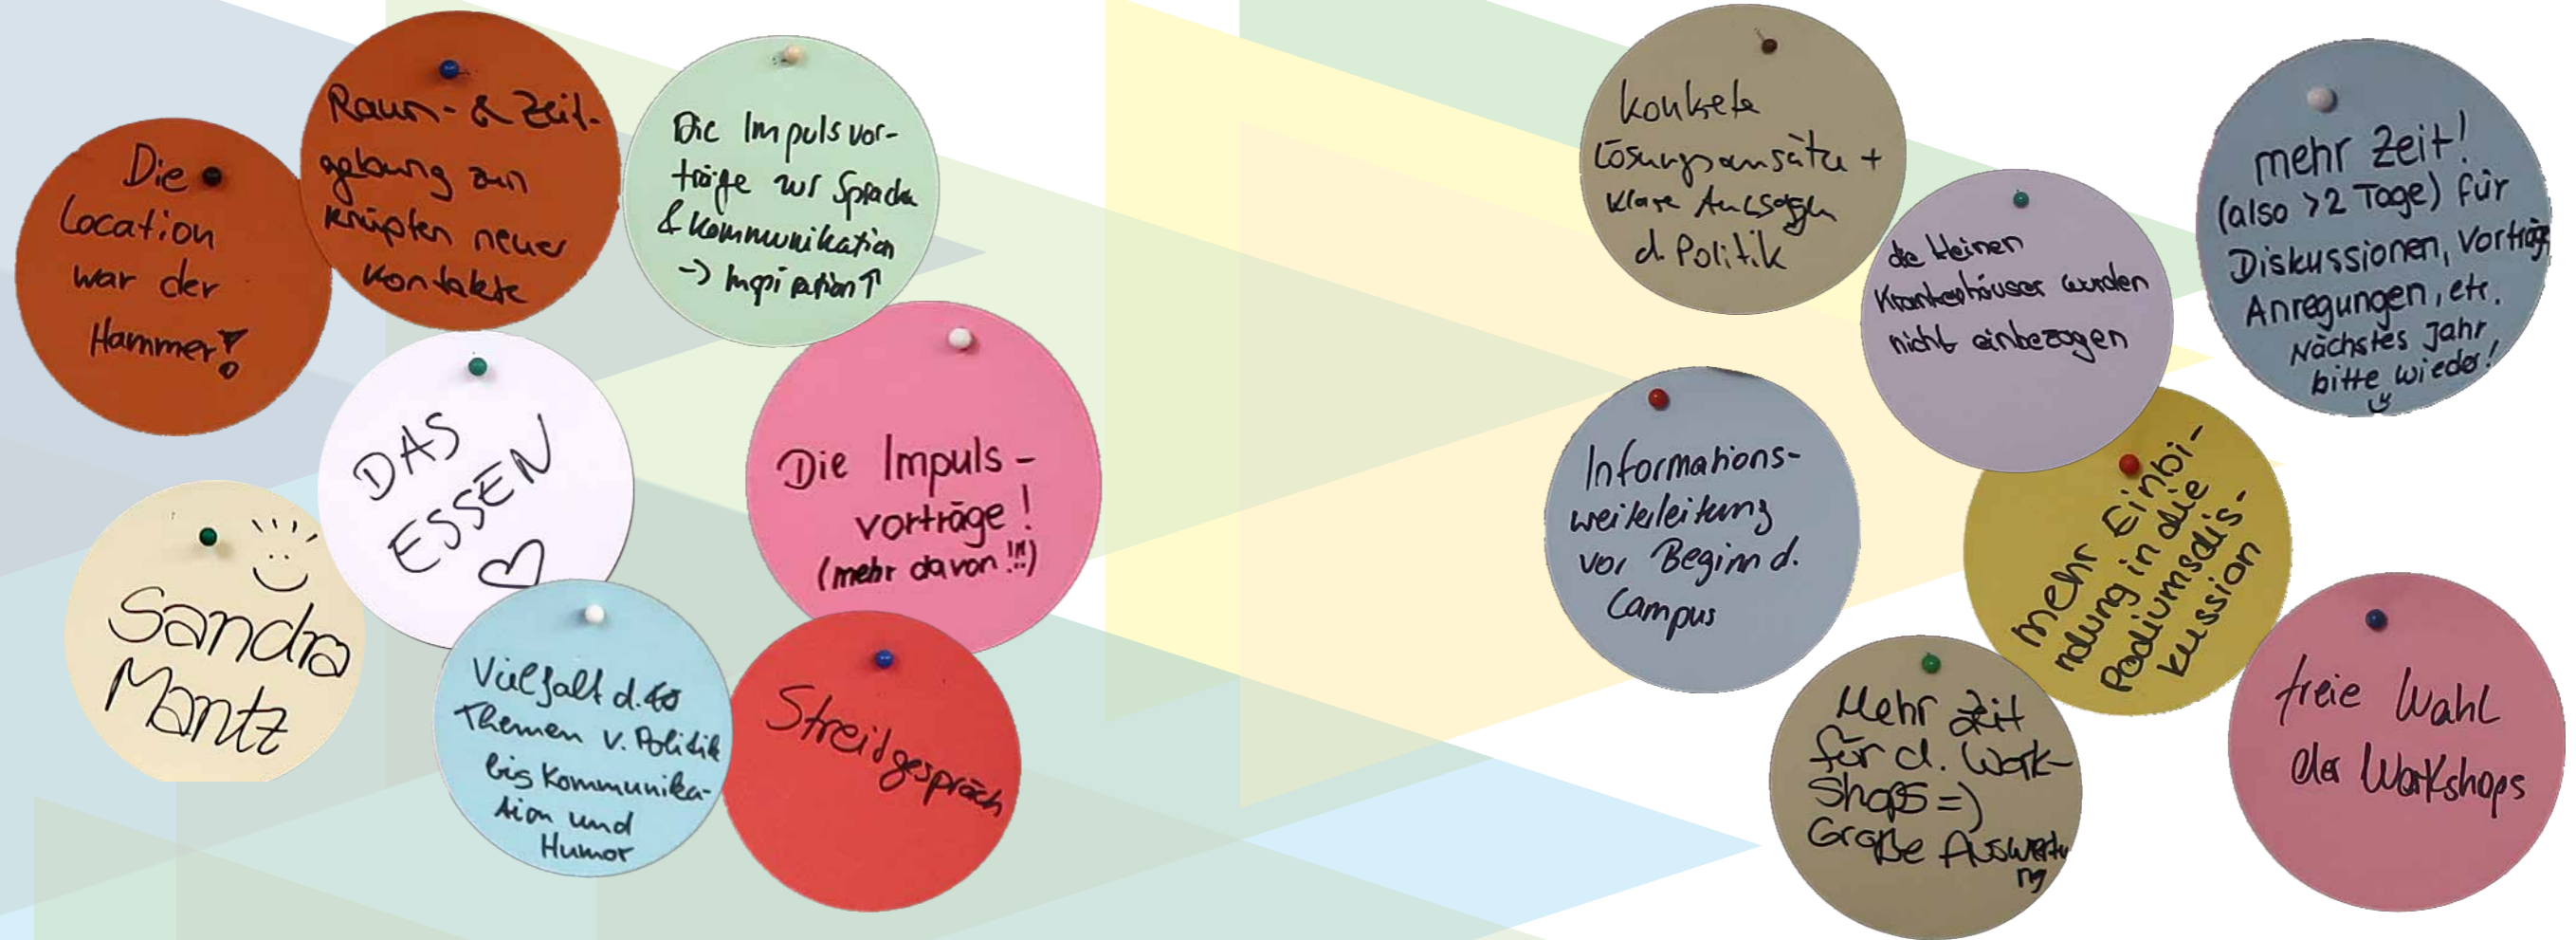 Die
Location
war der
Hammer!
Raum- & Zeit-
gebung zum
knüpfen neuer
Kontakte
Die Impulsvor-
träge zur Sprache
& Kommunikation
-> Inspiration ↑
DAS
ESSEN
♡
Die Impuls-
vorträge!
(mehr davon!!!)
Sandra
Mantz
Vielfalt d.
Themen v. Politik
bis Kommunika-
tion und
Humor
Streitgespräch
Konkrete
Lösungsansätze +
klare Aussagen
d. Politik
die kleinen
Krankenhäuser wurden
nicht einbezogen
mehr Zeit!
(also >2 Tage) für
Diskussionen, Vorträge
Anregungen, etc.
Nächstes Jahr
bitte wieder!
Informations-
weiterleitung
vor Beginn d.
Campus
mehr Einbi-
ndung in die
Podiumsdis-
kussion
Mehr Zeit
für d. Work-
Shops =)
Große Auswertu
ng
freie Wahl
der Workshops